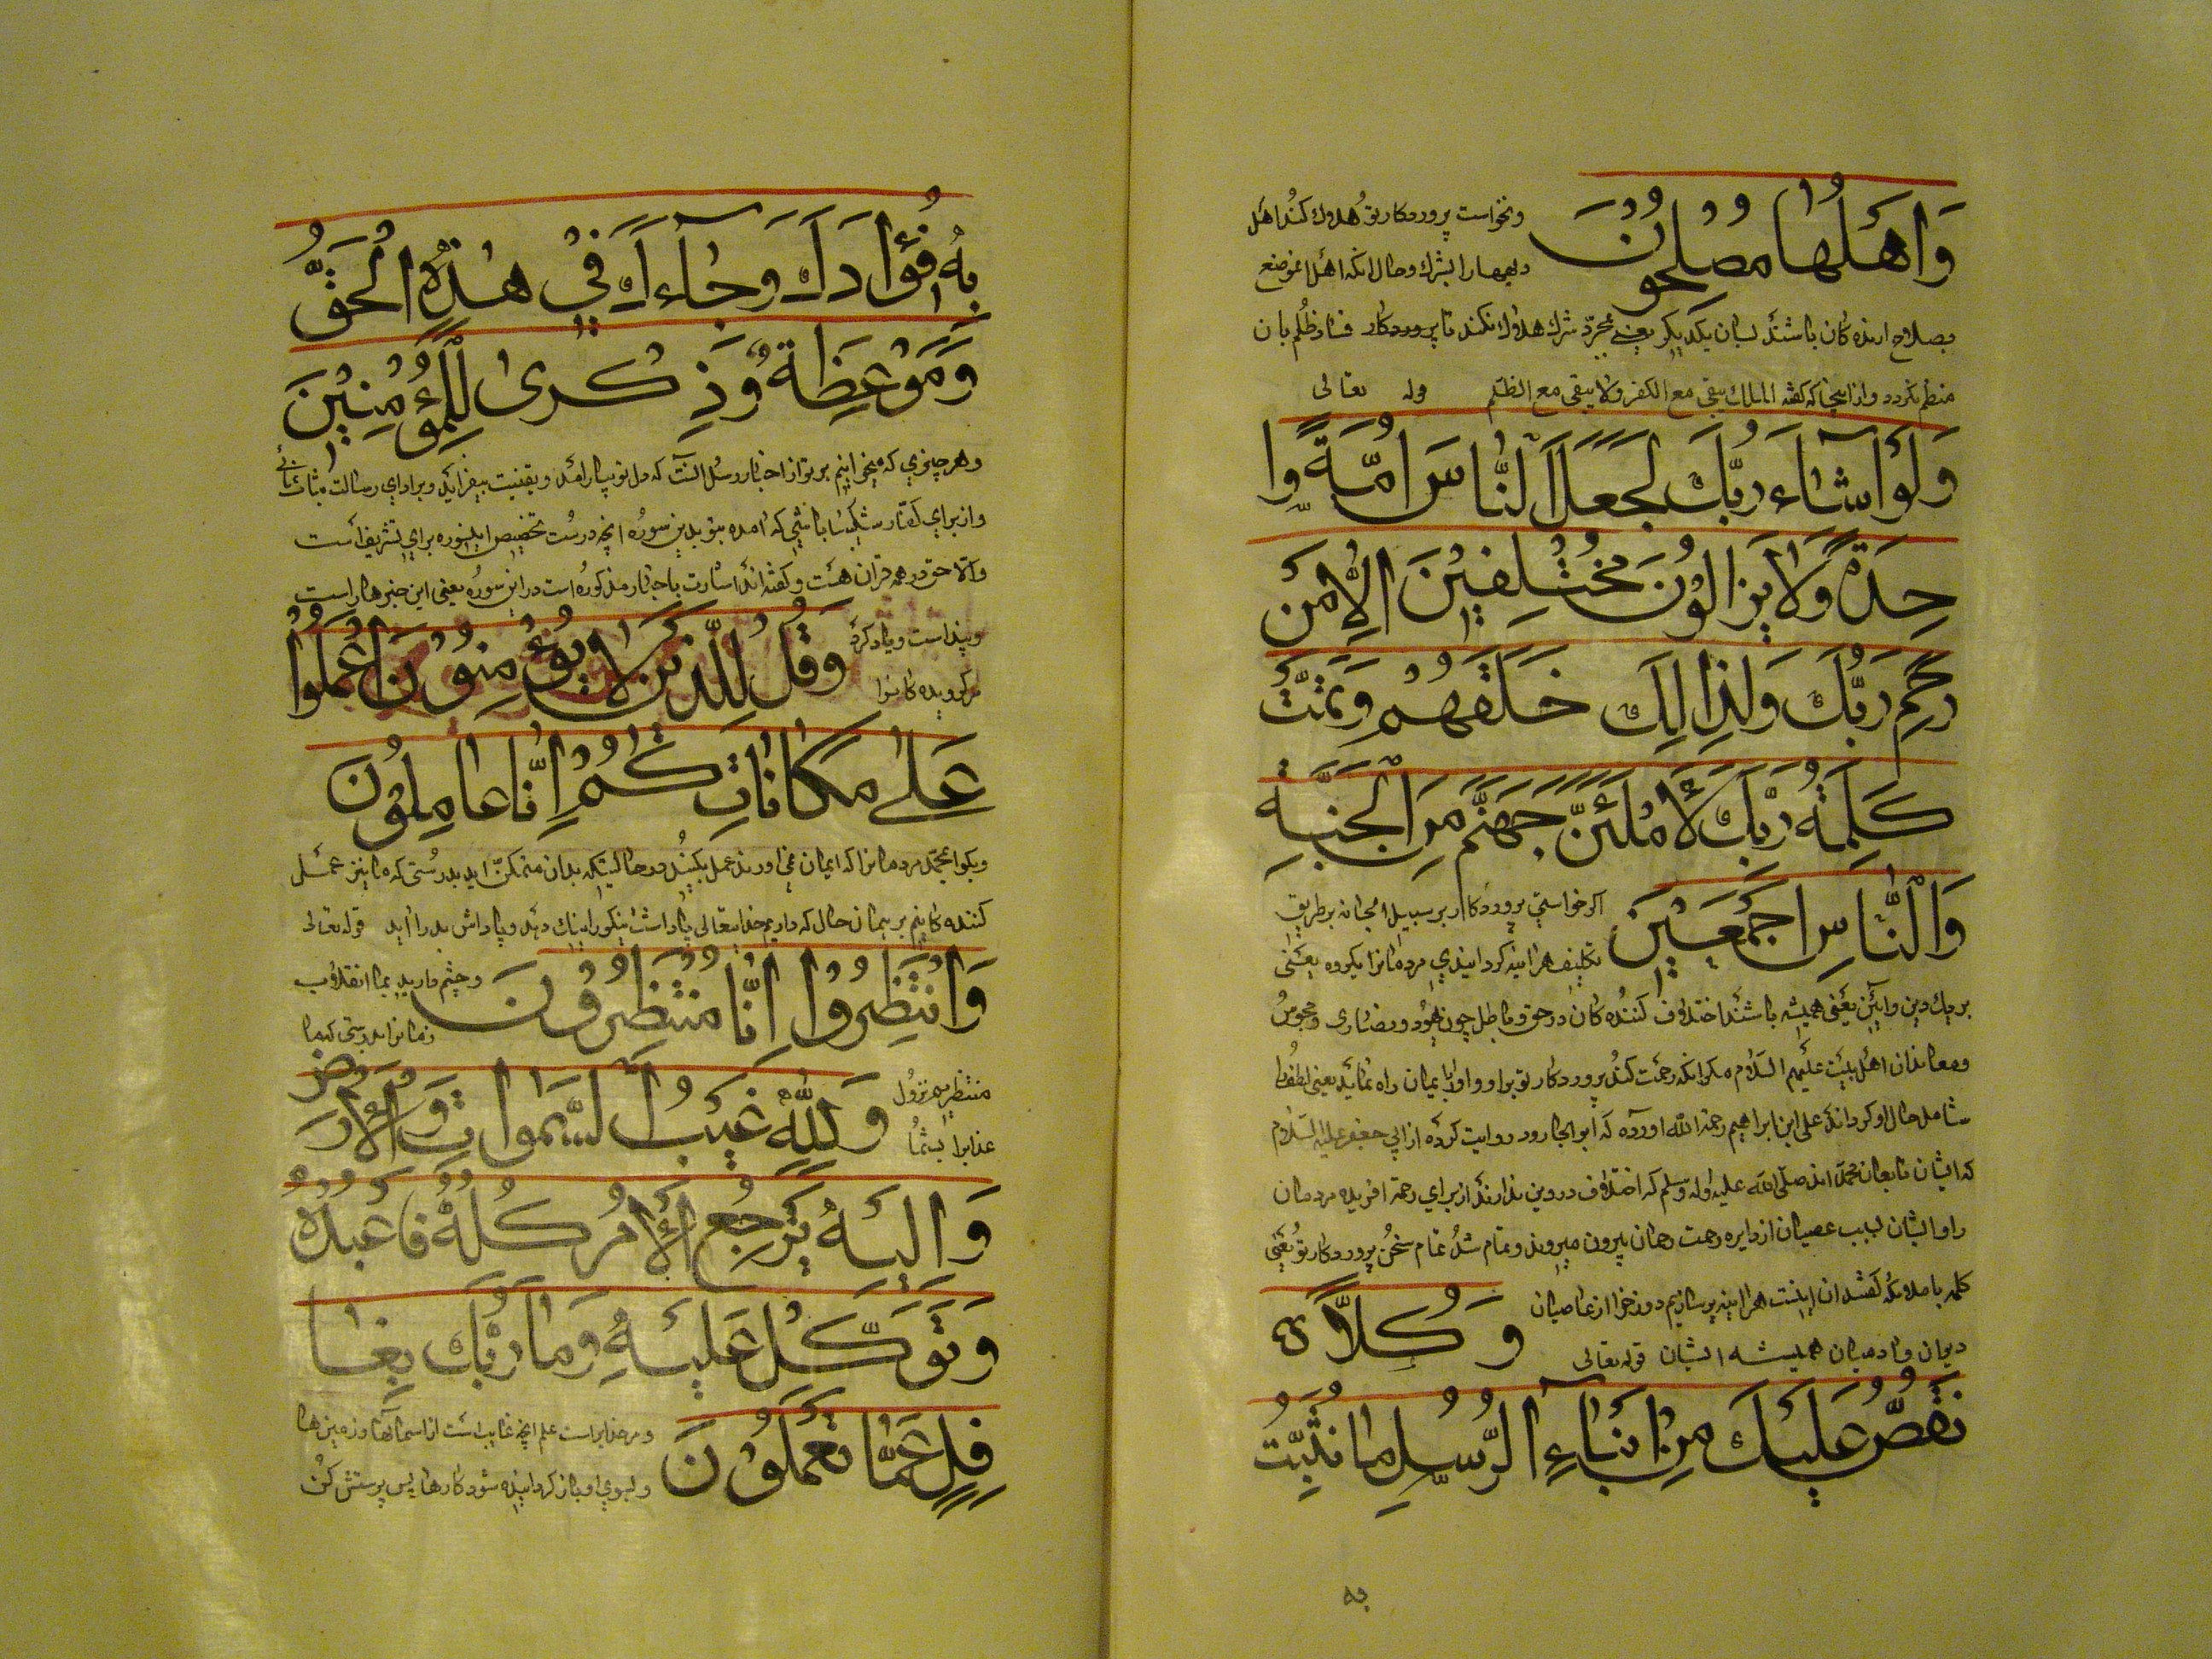 وَاَهلُها مُصْلِحُوْنَ
ونخواست پروردكار تو هلاوك كند اهل
ديهها را بشرك وحال انكه اهل انموضع
بصلاح ارنده كان باشند لسان يكديكر يعني بمجرّد شرك هلاوك نكند تا پروردكار فساد ظلم بان
منظم نكردد وازاينجا كه كفته الملك يبقى مع الكفر ولا يبقى مع الظلم قوله تعالى
وَلَوْ شآءَ رَبُّكَ لَجَعَلَ النَّاسَ اُمَّةً وا
حِدَةً وَلَا يَزَالُوْنَ مُخْتَلِفِيْنَ اِلَّا مَنْ
رَحِمَ رَبُّكَ وَلِذَالِكَ خَلَقَهُمْ وَتَمَّتْ
كَلِمَةُ رَبِّكَ لَأَمْلَئَنَّ جَهَنَّمَ مِنَ الْجِنَّةِ
وَالنَّاسِ اَجْمَعِيْنَ
اكر خواستي پروردكار بر سبيل ايجانه بر طريق
تكليف هراينه كردانيدي مردمانرا يكروه يعني
بر يك دين وائين يعني هميشه باشند اختلاف كننده كان در حق وباطل چون يهود ونصارى ومجوس
ومعاندان اهل بيت عليهم السلام مكر انكه رحمت كند پروردكار تو براو واو را بايمان راه نمايد يعني لطف را
شامل حال او كرداند على ابن ابراهيم رحمة الله اورده كه ابو الجارود روايت كرده از ابي جعفر عليه السلام
كه ايشان تابعان محمد اند صلى الله عليه واله وسلم كه اختلاف در دين ندارند از براي رحمة افريده مردمان
را وايشان بسبب عصيان از دايره رحمت رحمان بيرون ميروند وتمام شد تمام سخن پروردكار تو يعني
كلمه با ملائكه كفتند ان اينست هراينه پر سازيم دوزخرا از عاصيان
ديوان وادميان هميشه ايشان قوله تعالى
وَكُلاًّ
نَقُصُّ عَلَيْكَ مِنْ اَنْبَاءِ الرُّسُلِ مَا نُثَبِّتُ
به
بِهٖ فُؤَادَكَ وَجَاءَكَ فِيْ هٰذِهِ الْحَقُّ
وَمَوْعِظَةٌ وَذِكْرىٰ لِلْمُؤْمِنِيْنَ
وهر چيزي كه ميخوانيم بر تو از اخبار رسل انست كه دل تو بيارامد ويقينيت بيفزايد وبراداي رسالت ثبات نمائي
واز براي كفار شكيبا باشي كه امده بتو بدين سوره انچه درست تخصيص اينسوره براي تشريف است
والا حق در همه قران هست وكفته اند اشارت باخبار مذكوره است در اين سوره يعني اين خبرها راست
وپند است وياد كرد
مر كرويده كانرا
وَقُلْ لِلَّذِيْنَ لَا يُؤْمِنُوْنَ اعْمَلُوْا
عَلىٰ مَكَانَاتِكُمْ اِنَّا عَامِلُوْنَ
وبكو ايمحمد مردمانرا كه ايمان نمي اورند عمل بكنيد در حالتيكه بدان متمكن ايد بدرستي كه ما نيز عمل
كننده كانيم بر همان حال كه داريم خدايتعالى پاداشت نيكو را نيك دهد وپاداش بد را ابد قوله تعالى
وَانْتَظِرُوْا اِنَّا مُنْتَظِرُوْنَ
وچشم داريد بما انقلاب
زمانرا بدرستي كه ما
منتظريم نزول
عذابرا بشما
وَلِلّٰهِ غَيْبُ السَّمٰوَاتِ وَالْأَرْضِ
وَاِلَيْهِ يُرْجَعُ الْأَمْرُ كُلُّهُ فَاعْبُدْهُ
وَتَوَكَّلْ عَلَيْهِ وَمَا رَبُّكَ بِغَا
فِلٍ عَمَّا تَعْمَلُوْنَ
ومر خدايراست علم انچه غايب است از اسمانها وزمين ها
وبسوي او باز كردانيده شود كارها پس پرستش كن